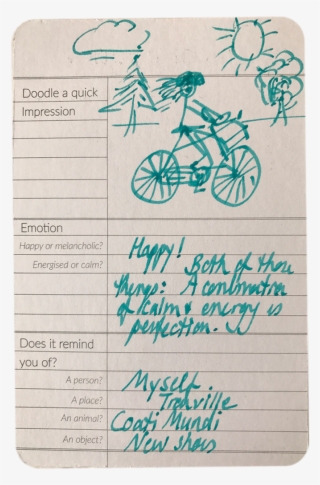 Doodle a quick
Impression
Emotion
Happy or melancholic?
Happy!
Energised or calm?
Both of those
things: A combination
of calm & energy is
perfection.
Does it remind
you of?
A person?
Myself.
A place?
Trouville
An animal?
Coati Mundi
An object?
New shoes